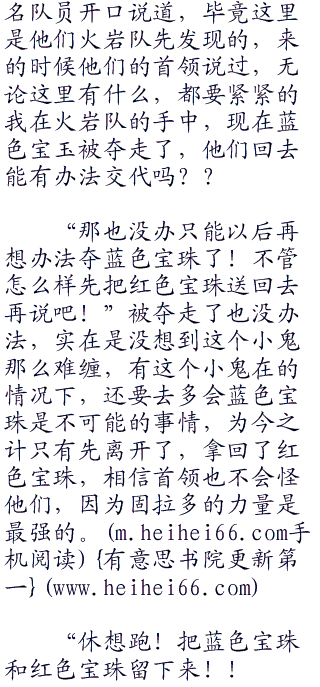 名队员开口说道，毕竟这里
是他们火岩队先发现的，来
的时候他们的首领说过，无
论这里有什么，都要紧紧的
我在火岩队的手中，现在蓝
色宝玉被夺走了，他们回去
能有办法交代吗？？
“那也没办只能以后再
想办法夺蓝色宝珠了！不管
怎么样先把红色宝珠送回去
再说吧！”被夺走了也没办
法，实在是没想到这个小鬼
那么难缠，有这个小鬼在的
情况下，还要去多会蓝色宝
珠是不可能的事情，为今之
计只有先离开了，拿回了红
色宝珠，相信首领也不会怪
他们，因为固拉多的力量是
最强的。(m.heihei66.com手
机阅读）{有意思书院更新第
一}(www.heihei66.com)
“休想跑！把蓝色宝珠
和红色宝珠留下来！！